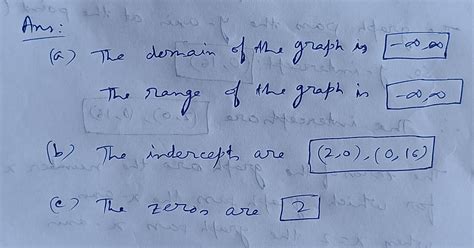 Ans:
(a) The domain of the graph is -∞,∞
The range of the graph is -∞,∞
(b) The intercepts are (2,0),(0,16)
(c) The zeros are 2